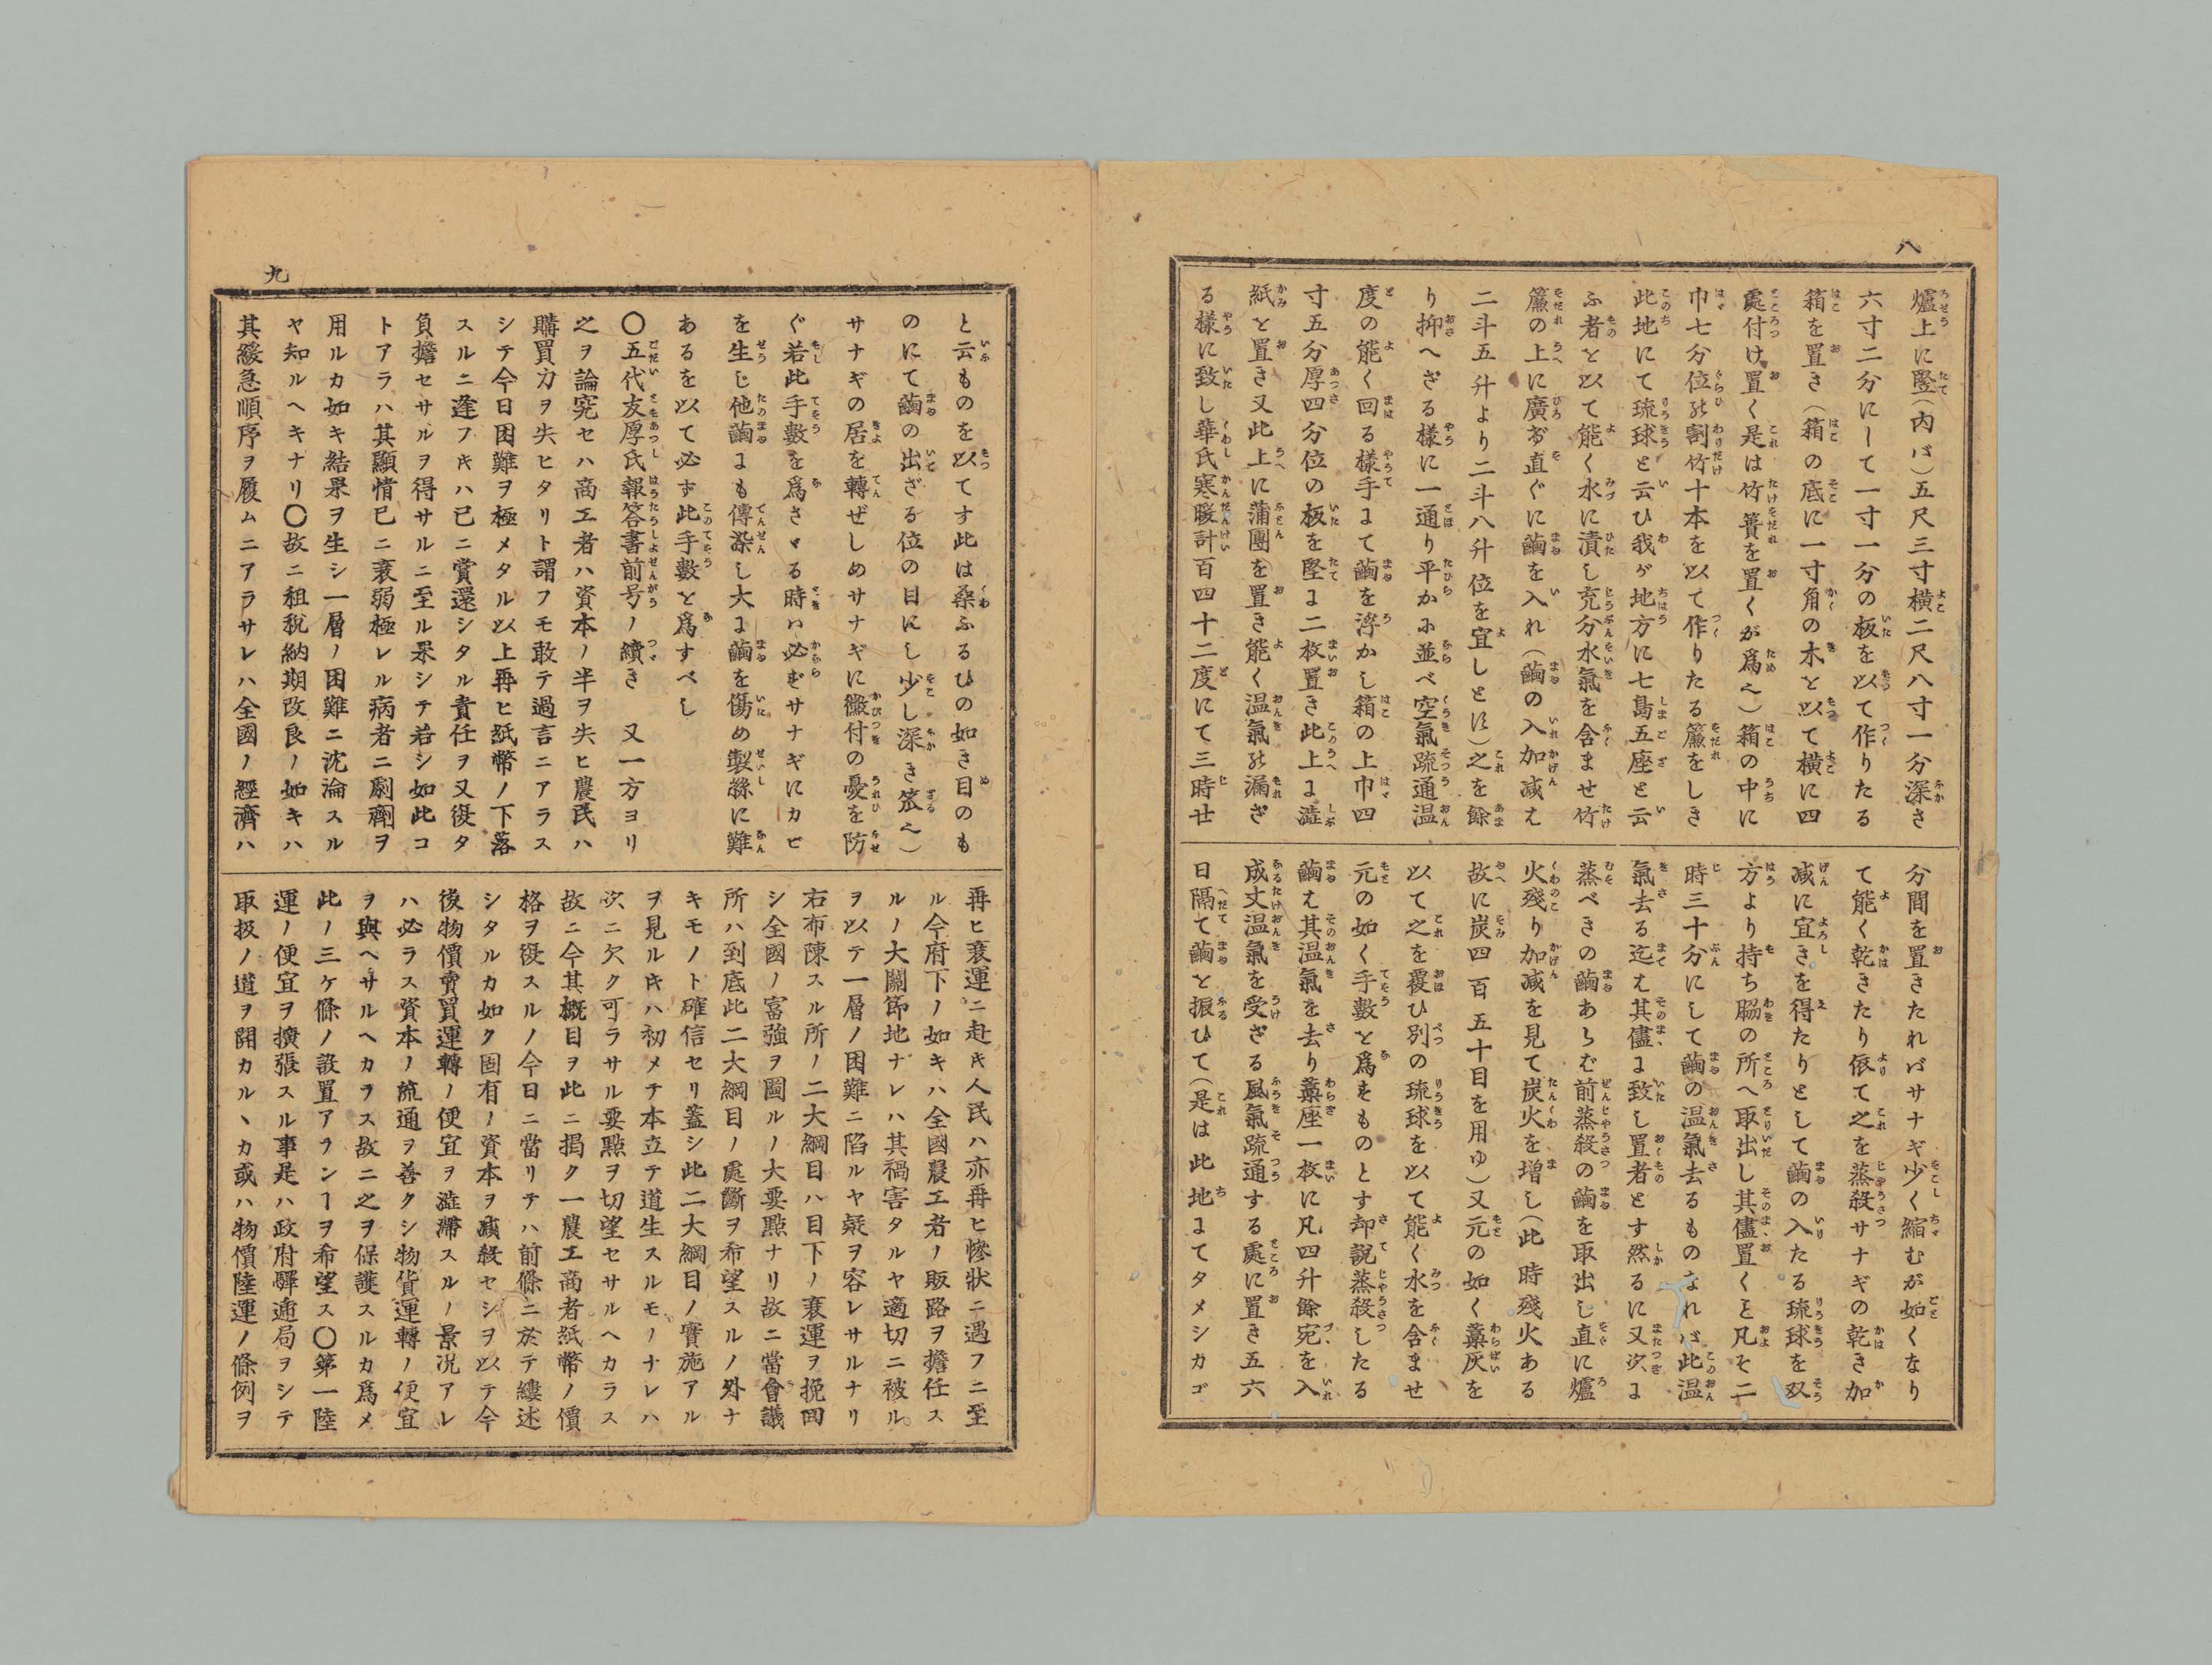 八
爐上に竪（內バ）五尺三寸橫二尺八寸一分深さ
六寸二分にして一寸一分の板を以て作りたる
箱を置き（箱の底に一寸角の木と以て橫に四
處付け置く是は竹簀を置くが爲〆）箱の中に
巾七分位の割竹十本を以て作りたる簾をしき
此地にて琉球と云ひ我が地方に七島五座と云
ふ者と以て能く水に漬し充分水氣を含ませ竹
簾の上に廣げ直ぐに繭を入れ（繭の入加减は
二斗五升より二斗八升位を宜しとす）之を餘
り抑へざる樣に一通り平かに並べ空氣疏通温
度の能く回る樣手まて繭を浮かし箱の上巾四
寸五分厚四分位の板を竪に二枚置き此上に澁
紙と置き又此上に蒲團を置き能く温氣の漏ざ
る樣に致し華氏寒暖計百四十二度にて三時廿
分間を置きたれバサナギ少く縮むが如くなり
て能く乾きたり依て之を蒸殺サナギの乾き加
减に宜きを得たりとして繭の入たる琉球を双
方より持ち脇の所へ取出し其儘置くと凡そ二
時三十分にして繭の温氣去るものなれバ此温
氣去る迄は其儘に致し置者とす然るに又次に
蒸べきの繭あらむ前蒸殺の繭を取出し直に爐
火殘り加减を見て炭火を增し（此時殘火ある
故に炭四百五十目を用ゆ）又元の如く藁灰を
以て之を覆ひ別の琉球を以て能く水を含ませ
元の如く手數と爲をものとす却說蒸殺したる
繭は其温氣を去り藁座一枚に凡四升餘宛を入
成丈温氣を受ざる風氣疏通する處に置き五六
日隔て繭と振ひて（是は此地まてタメシカゴ
九
と云ものを以てす此は桑ふるひの如き目のも
のにて繭の出ざる位の目にし少し深き笊〆）
サナギの居を轉ぜしめサナギに黴付の憂を防
ぐ若此手數を爲さゞる時ハ必ずサナギにカビ
を生じ他繭まも傳染し大に繭を傷め製絲に難
あるを以て必ず此手數と爲すべし
〇五代友厚氏報答書前号ノ續き　又一方ヨリ
之ヲ論究セハ商工者ハ資本ノ半ヲ失ヒ農民ハ
購買力ヲ失ヒタリト謂フモ敢テ過言ニアラス
シテ今日困難ヲ極メタル以上再ヒ紙幣ノ下落
スルニ逢フ𪜈ハ已ニ賞還シタル責任ヲ又復タ
負擔セサルヲ得サルニ至ル果シテ若シ如此コ
トアラハ其顯情已ニ衰弱極レル病者ニ劇劑ヲ
用ルカ如キ結果ヲ生シ一層ノ困難ニ沈淪スル
ヤ知ルヘキナリ〇故ニ租稅納期改良ノ如キハ
其緩急順序ヲ履ムニアラサレハ全國ノ經濟ハ
再ヒ衰運ニ赴キ人民ハ亦再ヒ慘狀ニ遇フニ至
ル今府下ノ如キハ全國農工者ノ販路ヲ擔任ス
ルノ大關節地ナレハ其禍害タルヤ適切ニ被ル
ヲ以テ一層ノ困難ニ陷ルヤ疑ヲ容レサルナリ
右布陳スル所ノ二大綱目ハ目下ノ衰運ヲ挽回
シ全國ノ富強ヲ圖ルノ大要點ナリ故ニ當會議
所ハ到底此二大綱目ノ處斷ヲ希望スルノ外ナ
キモノト確信セリ蓋シ此二大綱目ノ實施アル
ヲ見ル𪜈ハ初メテ本立テ道生スルモノナレハ
次ニ欠ク可ラサル要點ヲ切望セサルヘカラス
故ニ今其概目ヲ此ニ揭ク一農工商者紙幣ノ價
格ヲ復スルノ今日ニ當リテハ前條ニ於テ縷述
シタルカ如ク固有ノ資本ヲ减殺セシヲ以テ今
後物價賣買運轉ノ便宜ヲ澁滯スルノ景況アレ
ハ必ラス資本ノ流通ヲ善クシ物貨運轉ノ便宜
ヲ與ヘサルヘカラス故ニ之ヲ保護スルカ爲メ
此ノ三ケ條ノ設置アランヿヲ希望ス〇第一陸
運ノ便宜ヲ擴張スル事是ハ政府驛遞局ヲシテ
取扱ノ道ヲ開カルヽカ或ハ物價陸運ノ條例ヲ